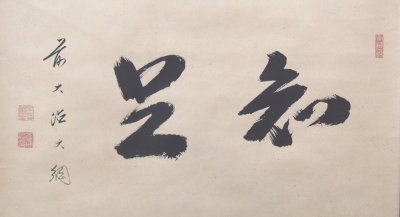 知足
前大徳大綱